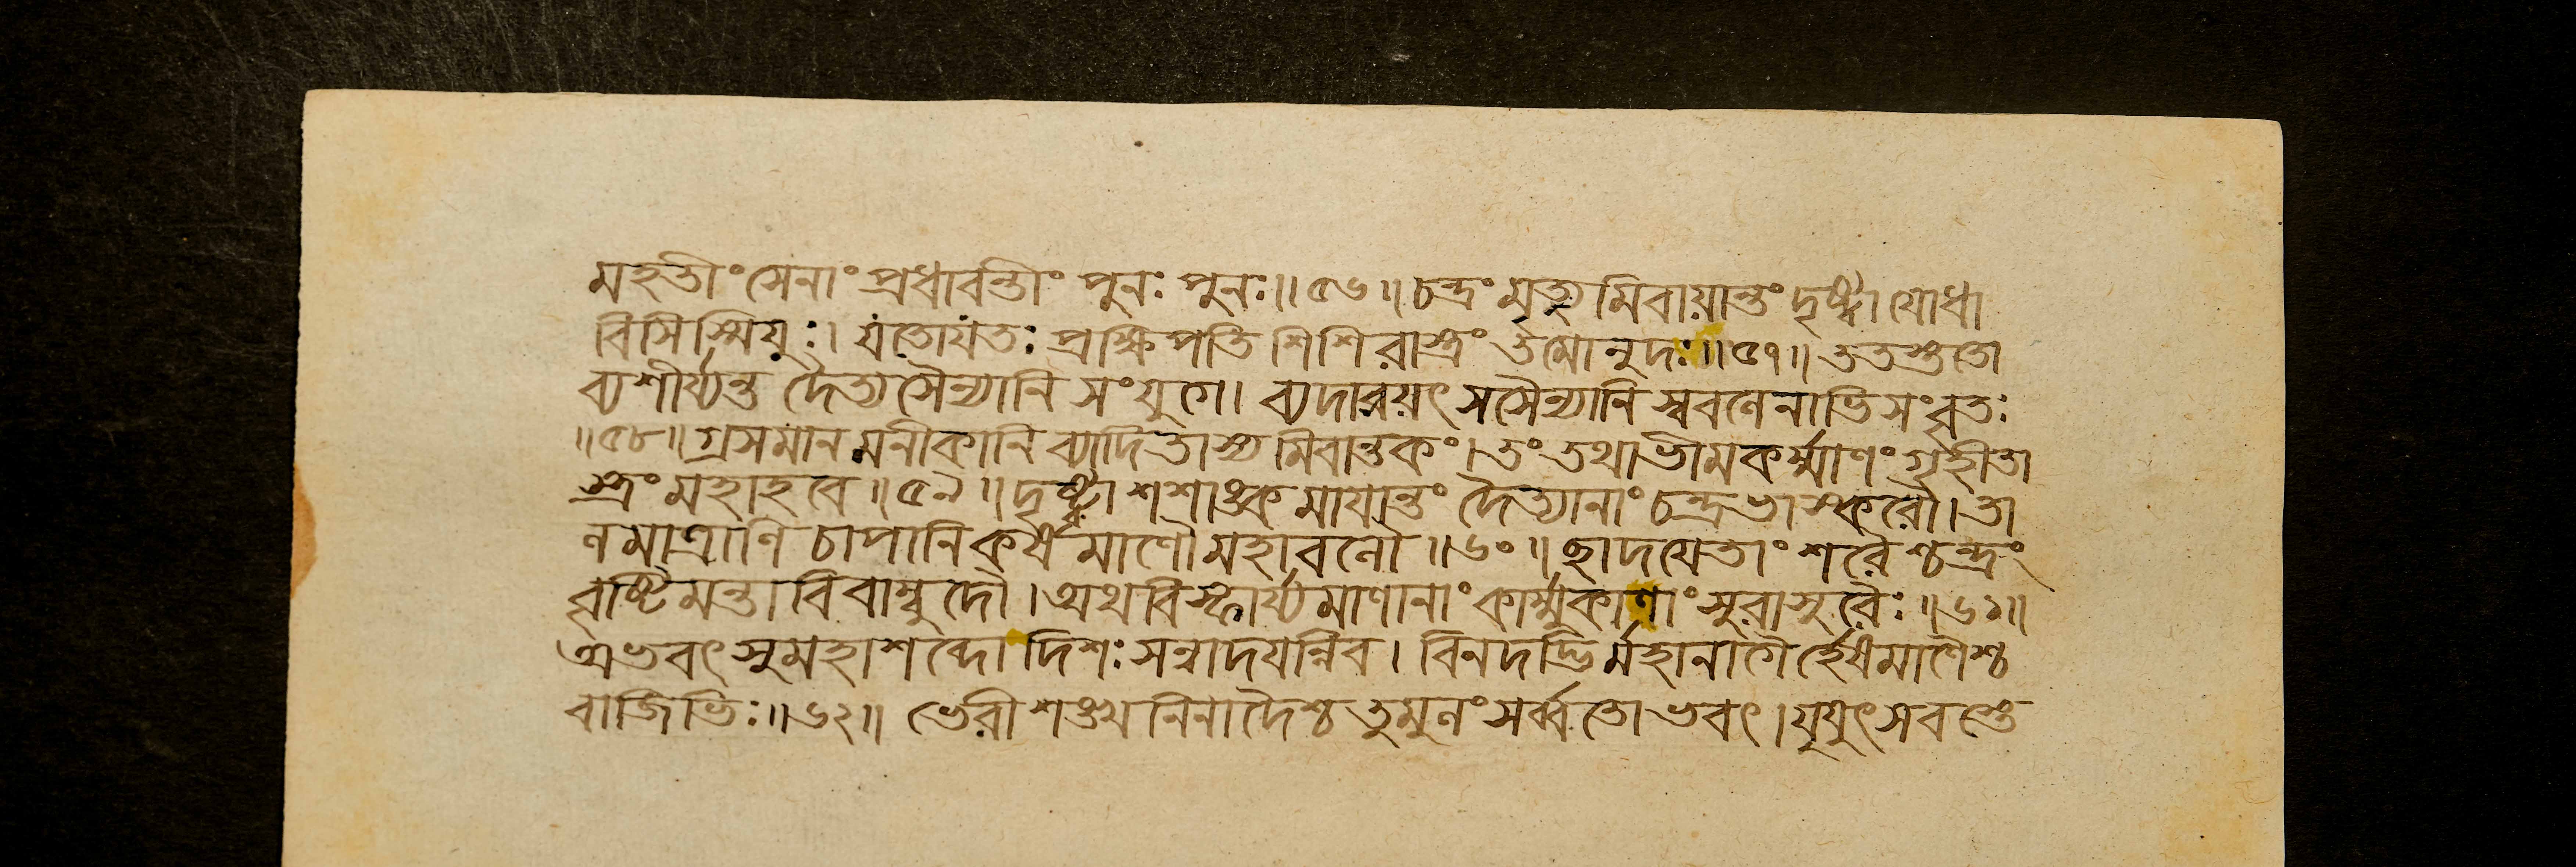 মহতীং সেনাং প্রধাবন্তীং পুনঃ পুনঃ॥৫৬॥ চন্দ্রং মৃত্যুমিবায়ান্তং দৃষ্ট্বা যোধা
বিসিস্মিযুঃ। যতোযতঃ প্রক্ষিপতি শিশিরাস্ত্রং তমোনুদঃ॥৫৭॥ ততস্ততো
ব্যশীর্য্যন্ত দৈত্যসৈন্যানি সংযুগে। ব্যদারয়ৎ সসৈন্যানি স্ববলেনাভিসংবৃতঃ
॥৫৮॥ গ্রসমানমনীকানি ব্যাদিতাস্যমিবান্তকং। তং তথা ভীমকর্ম্মাণং গৃহীতা
স্ত্রং মহাহবে॥৫৯॥ দৃষ্ট্বা শশাঙ্কমাযান্তং দৈত্যানাং চন্দ্রভাস্করৌ। তা
লমাত্রাণি চাপানি কর্ষমাণৌ মহাবলৌ॥৬০॥ ছাদযেতাং শরৈশ্চন্দ্রং
বৃষ্টিমন্তাবিবাম্বুদৌ। অথ বিস্ফার্য্যমাণানাং কার্ম্মুকাণাং সুরাসুরৈঃ॥৬১॥
অভবৎ সুমহাশব্দো দিশঃ সন্নাদযন্নিব। বিনদদ্ভির্মহানাগৈর্হ্রেষমাণৈশ্চ
বাজিভিঃ॥৬২॥ ভেরীশঙ্খনিনাদৈশ্চ তুমুলং সর্ব্বতোভবৎ। যুযুৎসবস্তে